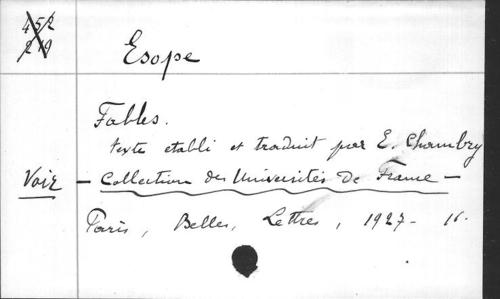 452
219
Esope
Fables.
texte etabli et traduit par E. Chambry
Voir — Collection des Universités de France —
Paris, Belles, Lettres, 1927 - 16.